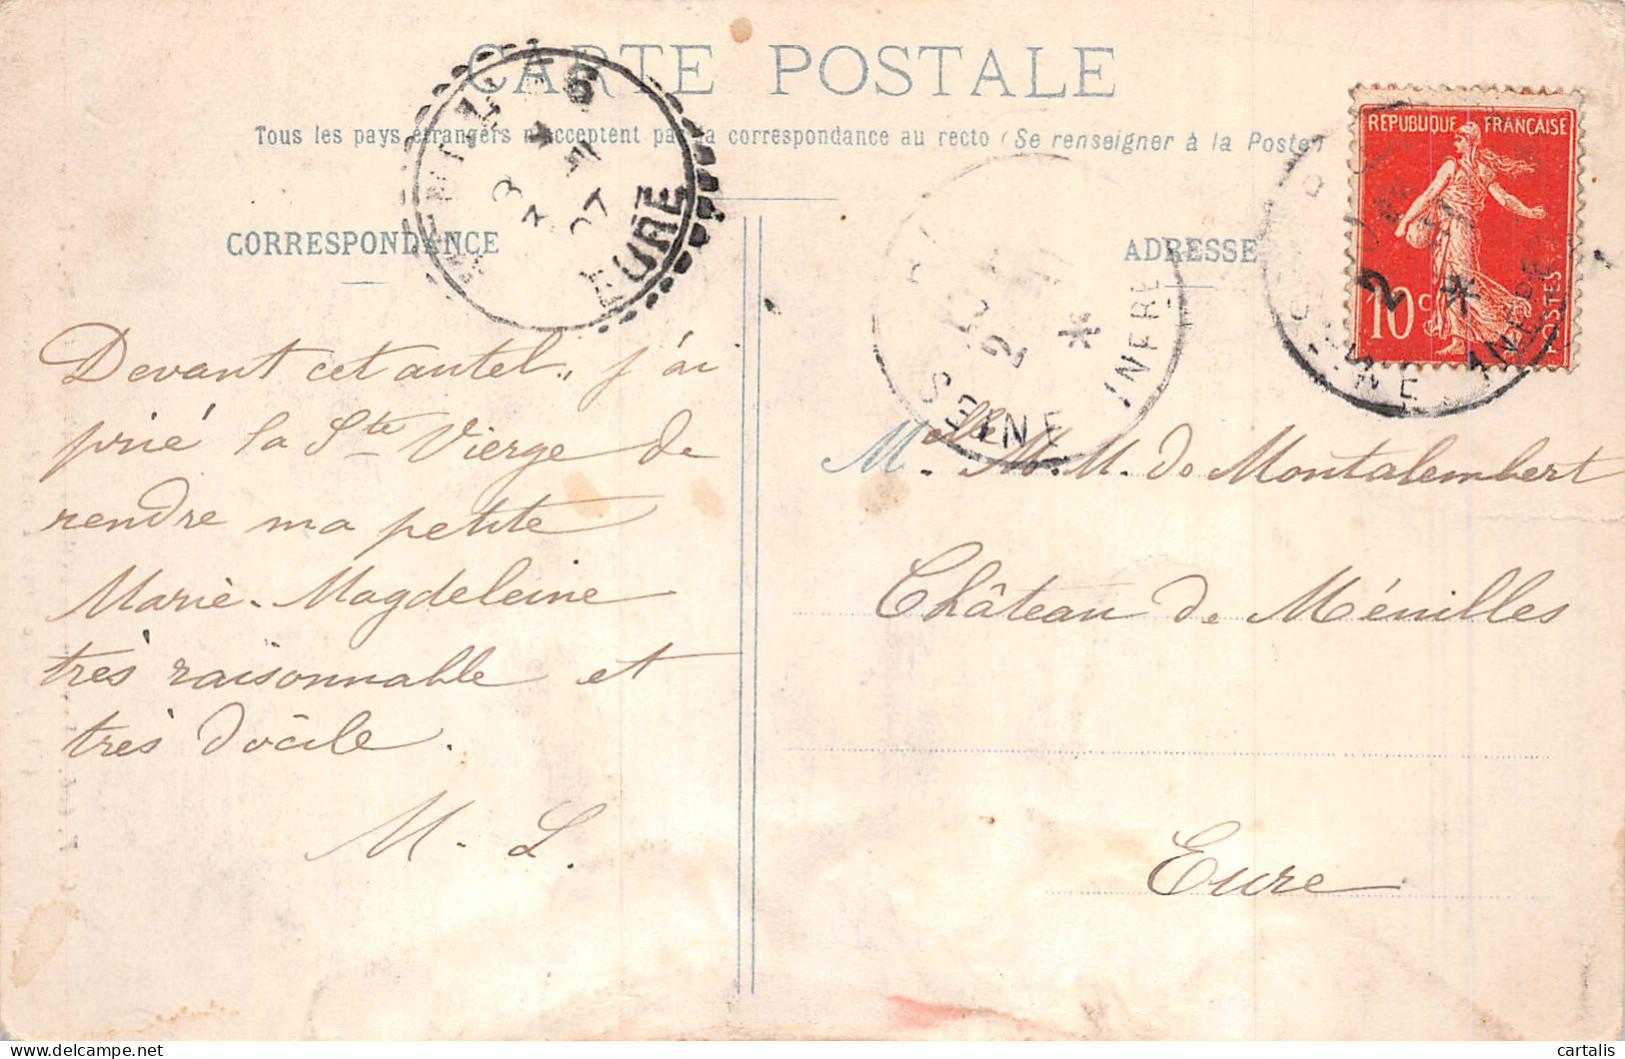 CARTE POSTALE
Tous les pays étrangers n'acceptent pas la correspondance au recto (Se renseigner à la Poste)
CORRESPONDANCE
ADRESSE
RÉPUBLIQUE FRANÇAISE
10c
POSTES
EURE
SEINE INFRE
2
SEINE INFRE
2
Devant cet autel, j'ai
prié la Ste Vierge de
rendre ma petite
Marie-Magdeleine
très raisonnable et
très docile.
M. L.
Melle M. M. de Montalembert
Château de Ménilles
Eure
cartalis